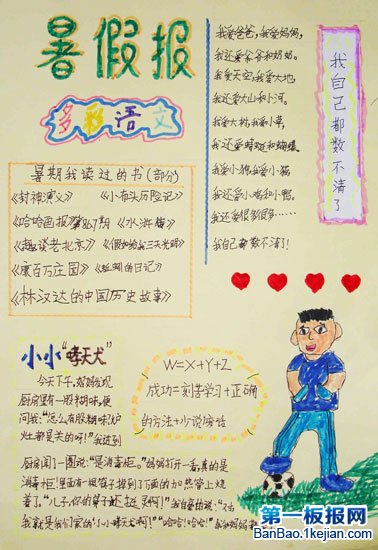 暑假报
多彩语文
暑期我读过的书(部分)
《封神演义》 《小布头历险记》
《哈哈画报》第867期 《水浒传》
《趣谈老北京》 《假如给我三天光明》
《康百万庄园》 《蚯蚓的日记》
《林汉达的中国历史故事》
我爱爸爸,我爱妈妈,
我还爱爷爷和奶奶。
我爱天空,我爱大地,
我还爱大山和小河。
我爱大树,我爱小草,
我还爱蜻蜓和蝴蝶。
我爱小狗,我爱小猫
我还爱小鸡和小鸭,
我还爱很多很多……
我自己都数不清了!
我自己都数不清了
小小“哮天犬”
今天下午,妈妈发现
厨房里有一股糊味,便
问我:“怎么有股糊味?炉
灶都是关的呀!”我进到
厨房闻了一圈说:“是消毒柜。”妈妈打开一看,真的是
消毒柜里面有一根筷子掉到了下面的加热管上烧
着了。“儿子,你的鼻子还挺灵啊!”我自豪的说:“对
我就是咱们家的‘小小哮天犬’啊!”“哈哈!哈哈!”我和妈妈
W=X+Y+Z
成功=刻苦学习+正确
的方法+少说废话
第一板报网
BanBao.1kejian.com